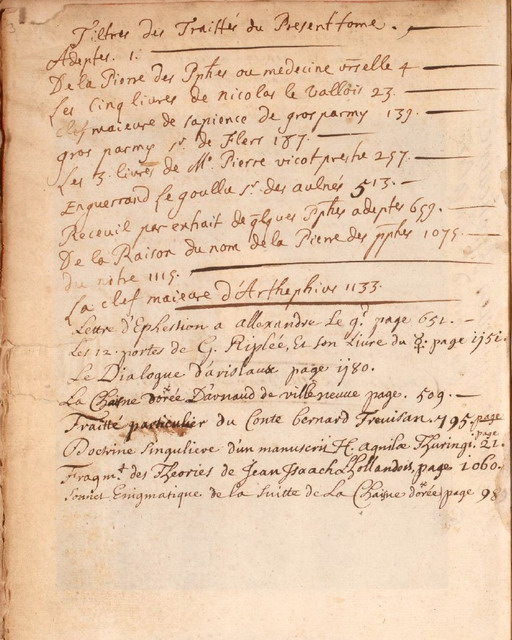 Tiltres des Traittés du Present tome.
Adeptes. 1.
De la Pierre des Pphes ou medecine vrselle 4
Les Cinq livres de nicolas le vallois 23.
Clef maieure de sapience de gros parmy 139.
gros parmy sr. de flers 187.
Les 3. livres de Mr. Pierre vicot prestre 257.
Enguerrand le goullu sr. des aulnés 513.
Receuil par extrait de qlques Pphes adeptes 659.
De la Raison du nom de la Pierre des pphes 1075.
du nitre 1115.
La clef maieure d'Arthephius 1133.
Lettre d'Ephestion a allexandre le gd. page 651.
Les 12. portes de G. Riplée, & son Livre du ☿. page 1151.
Le Dialogue d'arislaux page 1180.
La Chaisne dorée D'arnaud de villeneuve page. 509.
Traitte particulier du Conte bernard Trevisan. 795. page
Doctrine singuliere d'un manuscrit H. aquilæ Thuringi. page 21.
Fragmt. des Theories de Jean Isaach Hollandois, page 1060.
Sonnet Enigmatique de la suitte de La Chaisne dorée, page 98